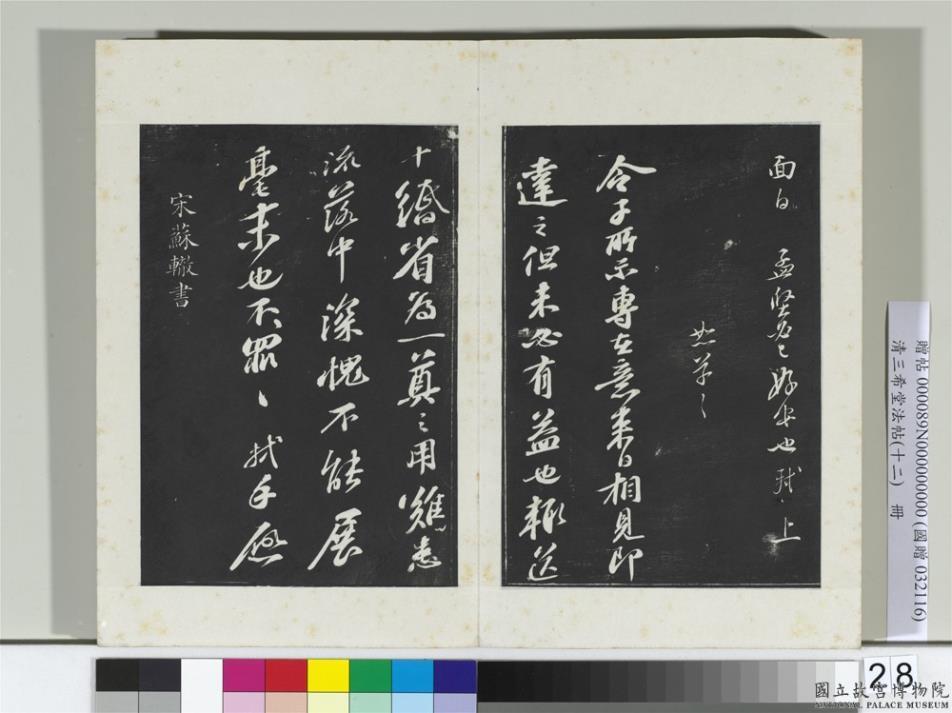 面白 孟堅君之好安也軾上
安草之
令子所示專在意來日相見即
達之但未必有益也輒送
十緡省為一奠之用難患
流落中深愧不能展
毫末也不罪々軾手啟
宋蘇轍書
贈帖 000089N000000000 (國贈 032116)
清三希堂法帖(十二) 冊
28
國立故宮博物院
NATIONAL PALACE MUSEUM